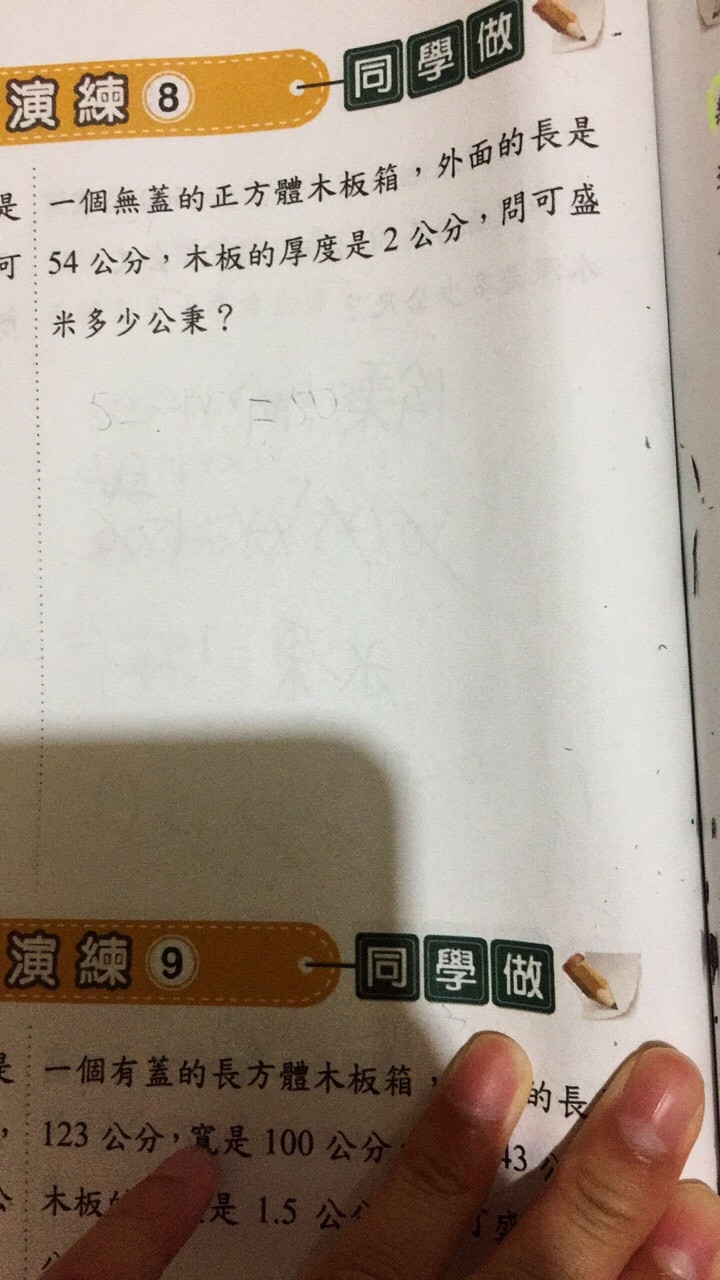 演練 8 同學做
是 一個無蓋的正方體木板箱，外面的長是
可 54 公分，木板的厚度是 2 公分，問可盛
米多少公秉？
演練 9 同學做
是 一個有蓋的長方體木板箱， 的長
， 123 公分，寬是 100 公分 43 公
公 木板 是 1.5 公 盛